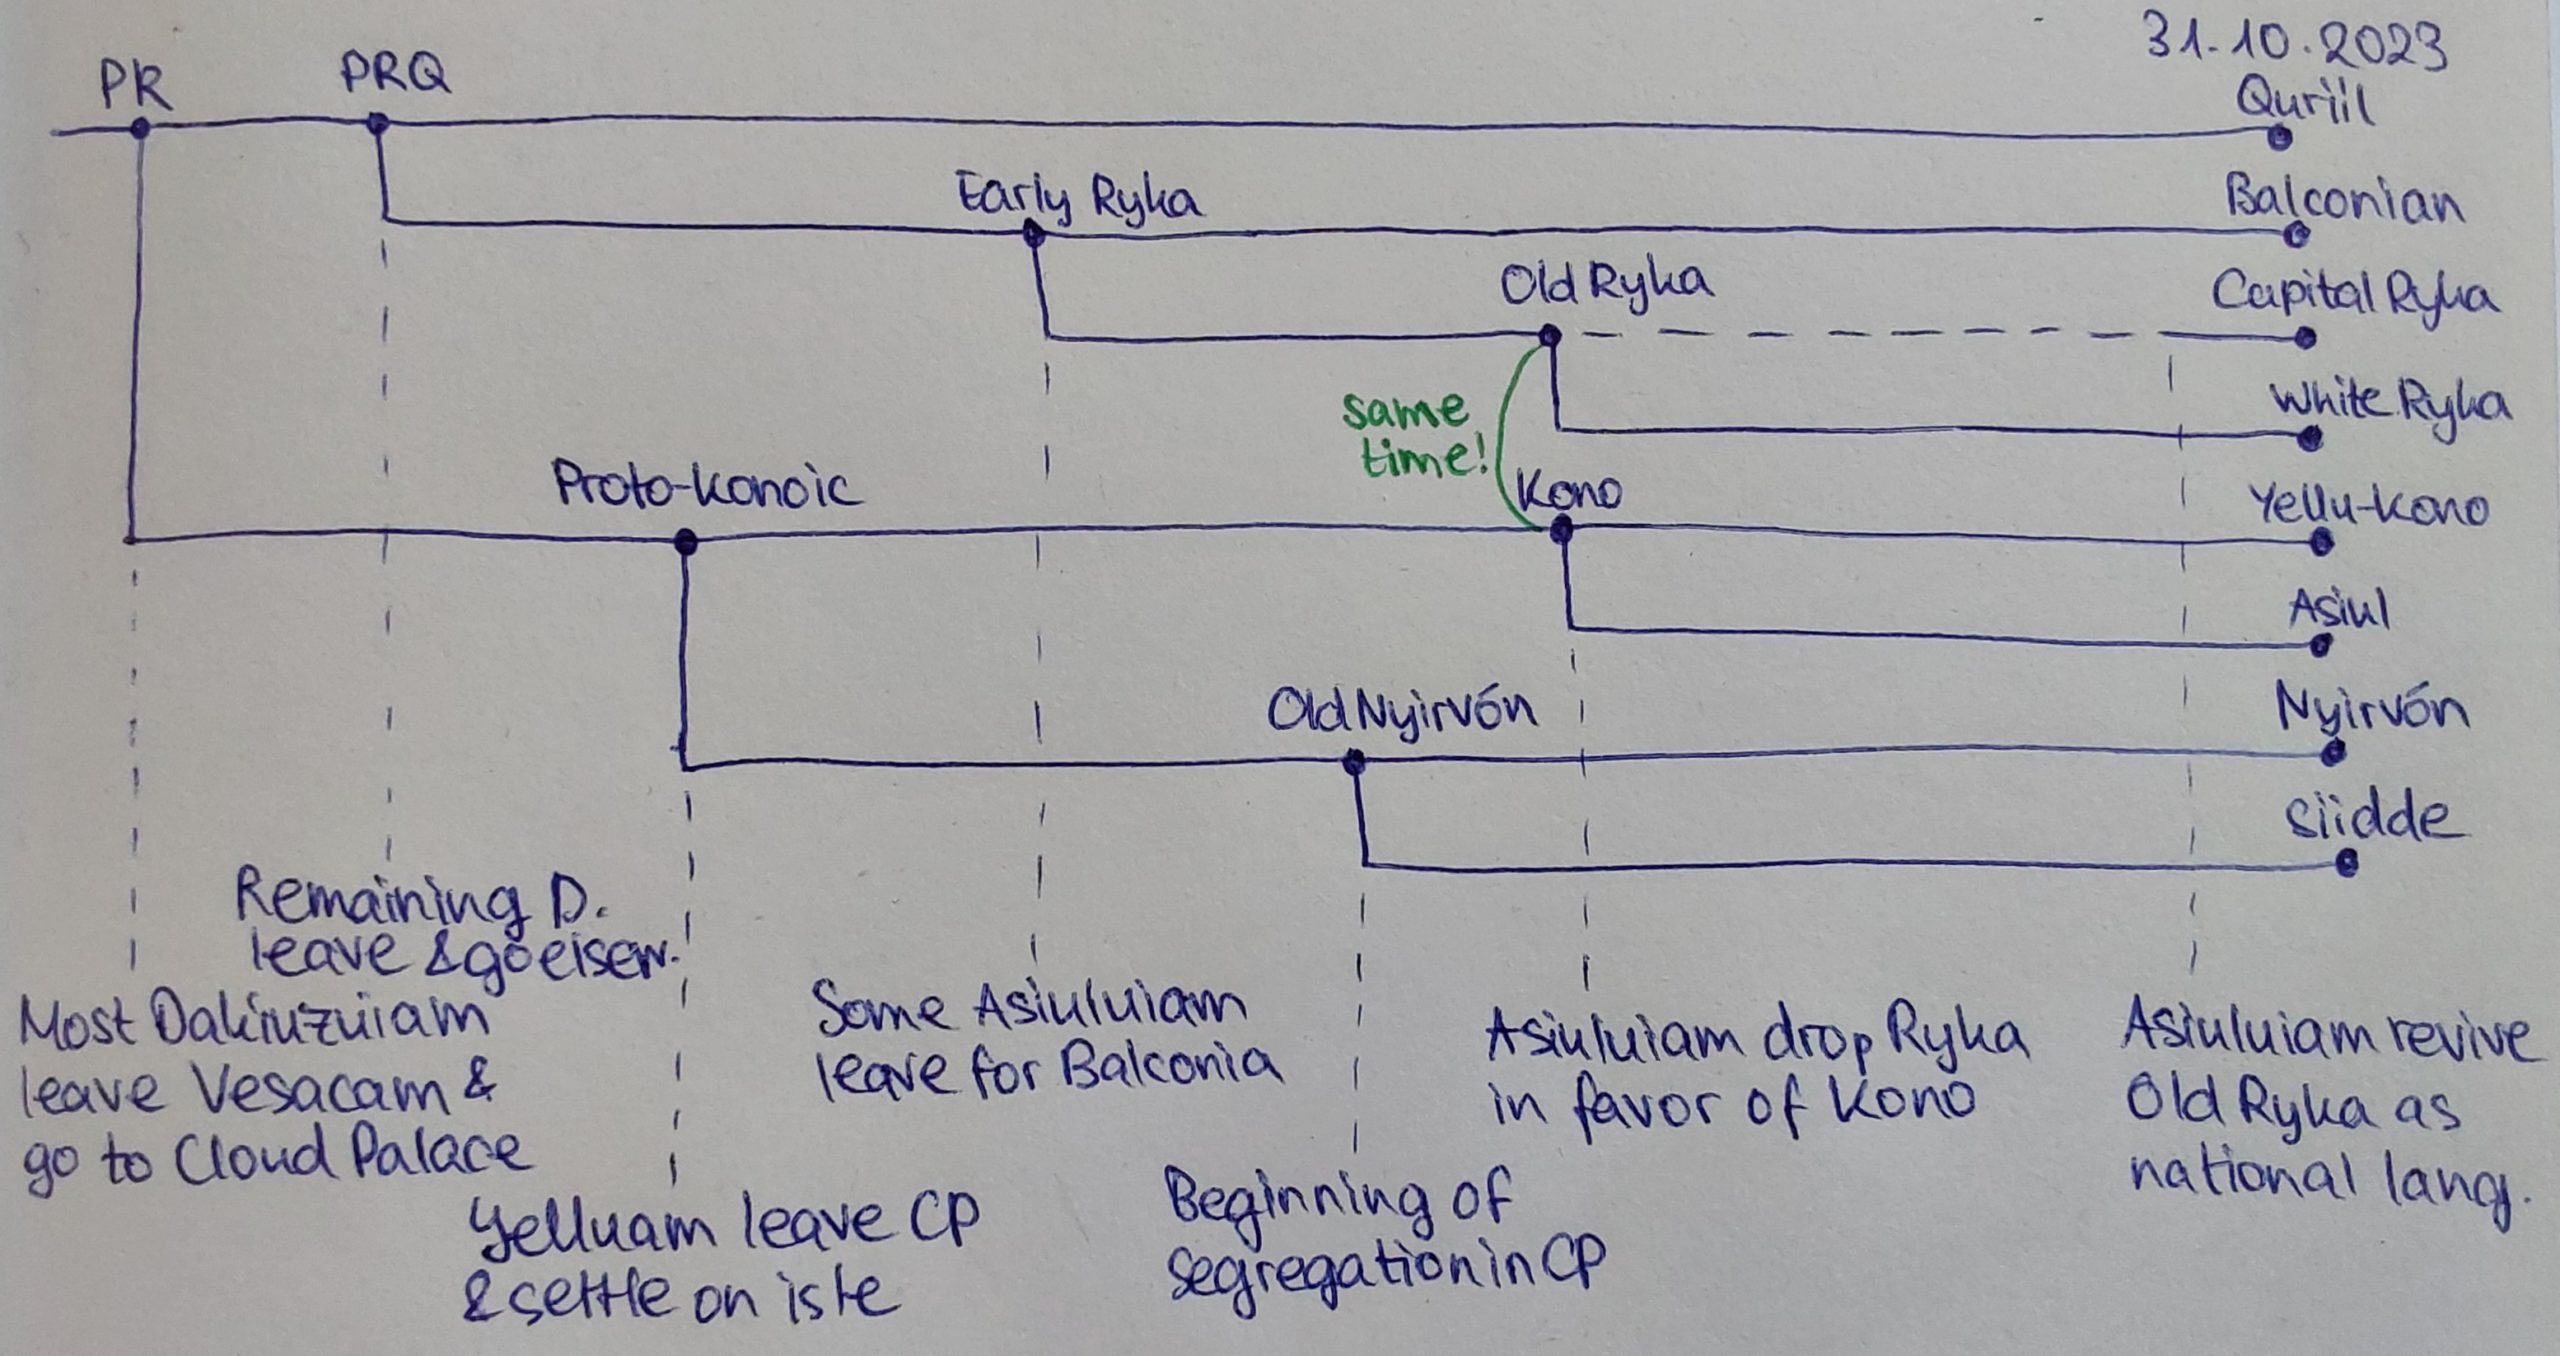 31.10.2023
PR
PRQ
Quriil
Early Ryka
Balconian
Old Ryka
Capital Ryka
same
time!
White Ryka
Proto-Konoic
Kono
Yellu-Kono
Asiul
Old Nyirvón
Nyirvón
Siidde
Remaining D.
leave & go elsew.
Most Dakiuzuiam
leave Vesacam &
go to Cloud Palace
Yelluam leave CP
& settle on isle
Some Asiuluiam
leave for Balconia
Beginning of
segregation in CP
Asiuluiam drop Ryka
in favor of Kono
Asiuluiam revive
Old Ryka as
national lang.